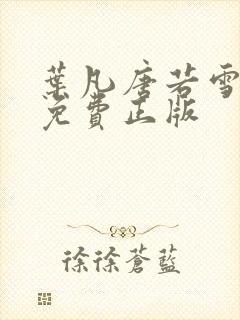 葉凡唐若雪
免費正版
徐徐蒼藍